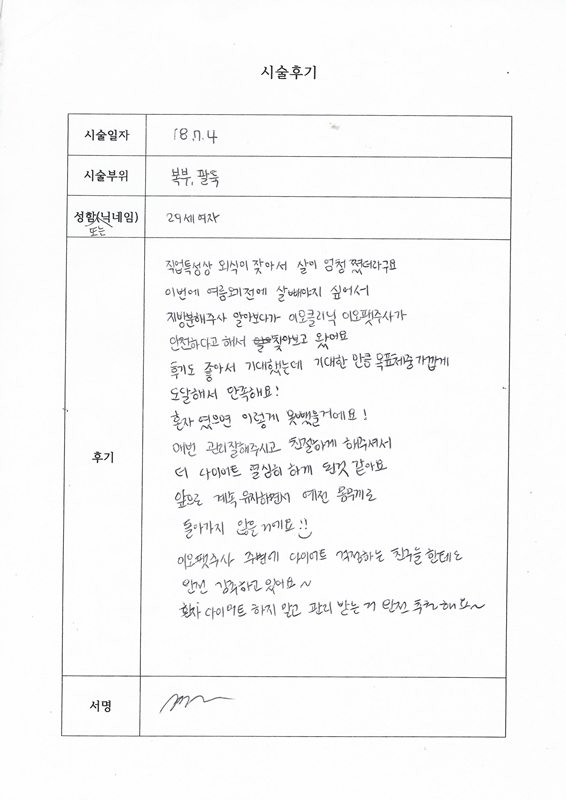 시술후기
시술일자 18.7.4
시술부위 복부, 팔뚝
성함(닉네임) 29세 여자
또는
직업특성상 외식이 잦아서 살이 엄청 쪘더라구요
이번에 여름오기전에 살빼야지 싶어서
지방분해주사 알아보다가 이오클리닉 이오팻주사가
안전하다고 해서 찾아보고 왔어요
후기도 좋아서 기대했는데 기대한 만큼 목표체중 가깝게
도달해서 만족해요!
혼자 였으면 이렇게 못뺐을거에요!
후기
매번 관리잘해주시고 친절하게 해주셔서
더 다이어트 열심히 하게 된것 같아요
앞으로 계속 유지하면서 예전 몸무게로
돌아가지 않을거에요!!
이오팻주사 주변에 다이어트 걱정하는 친구들한테도
완전 강추하고있어요~
혼자 다이어트 하지 말고 관리 받는거 완전 추천해요~
서명